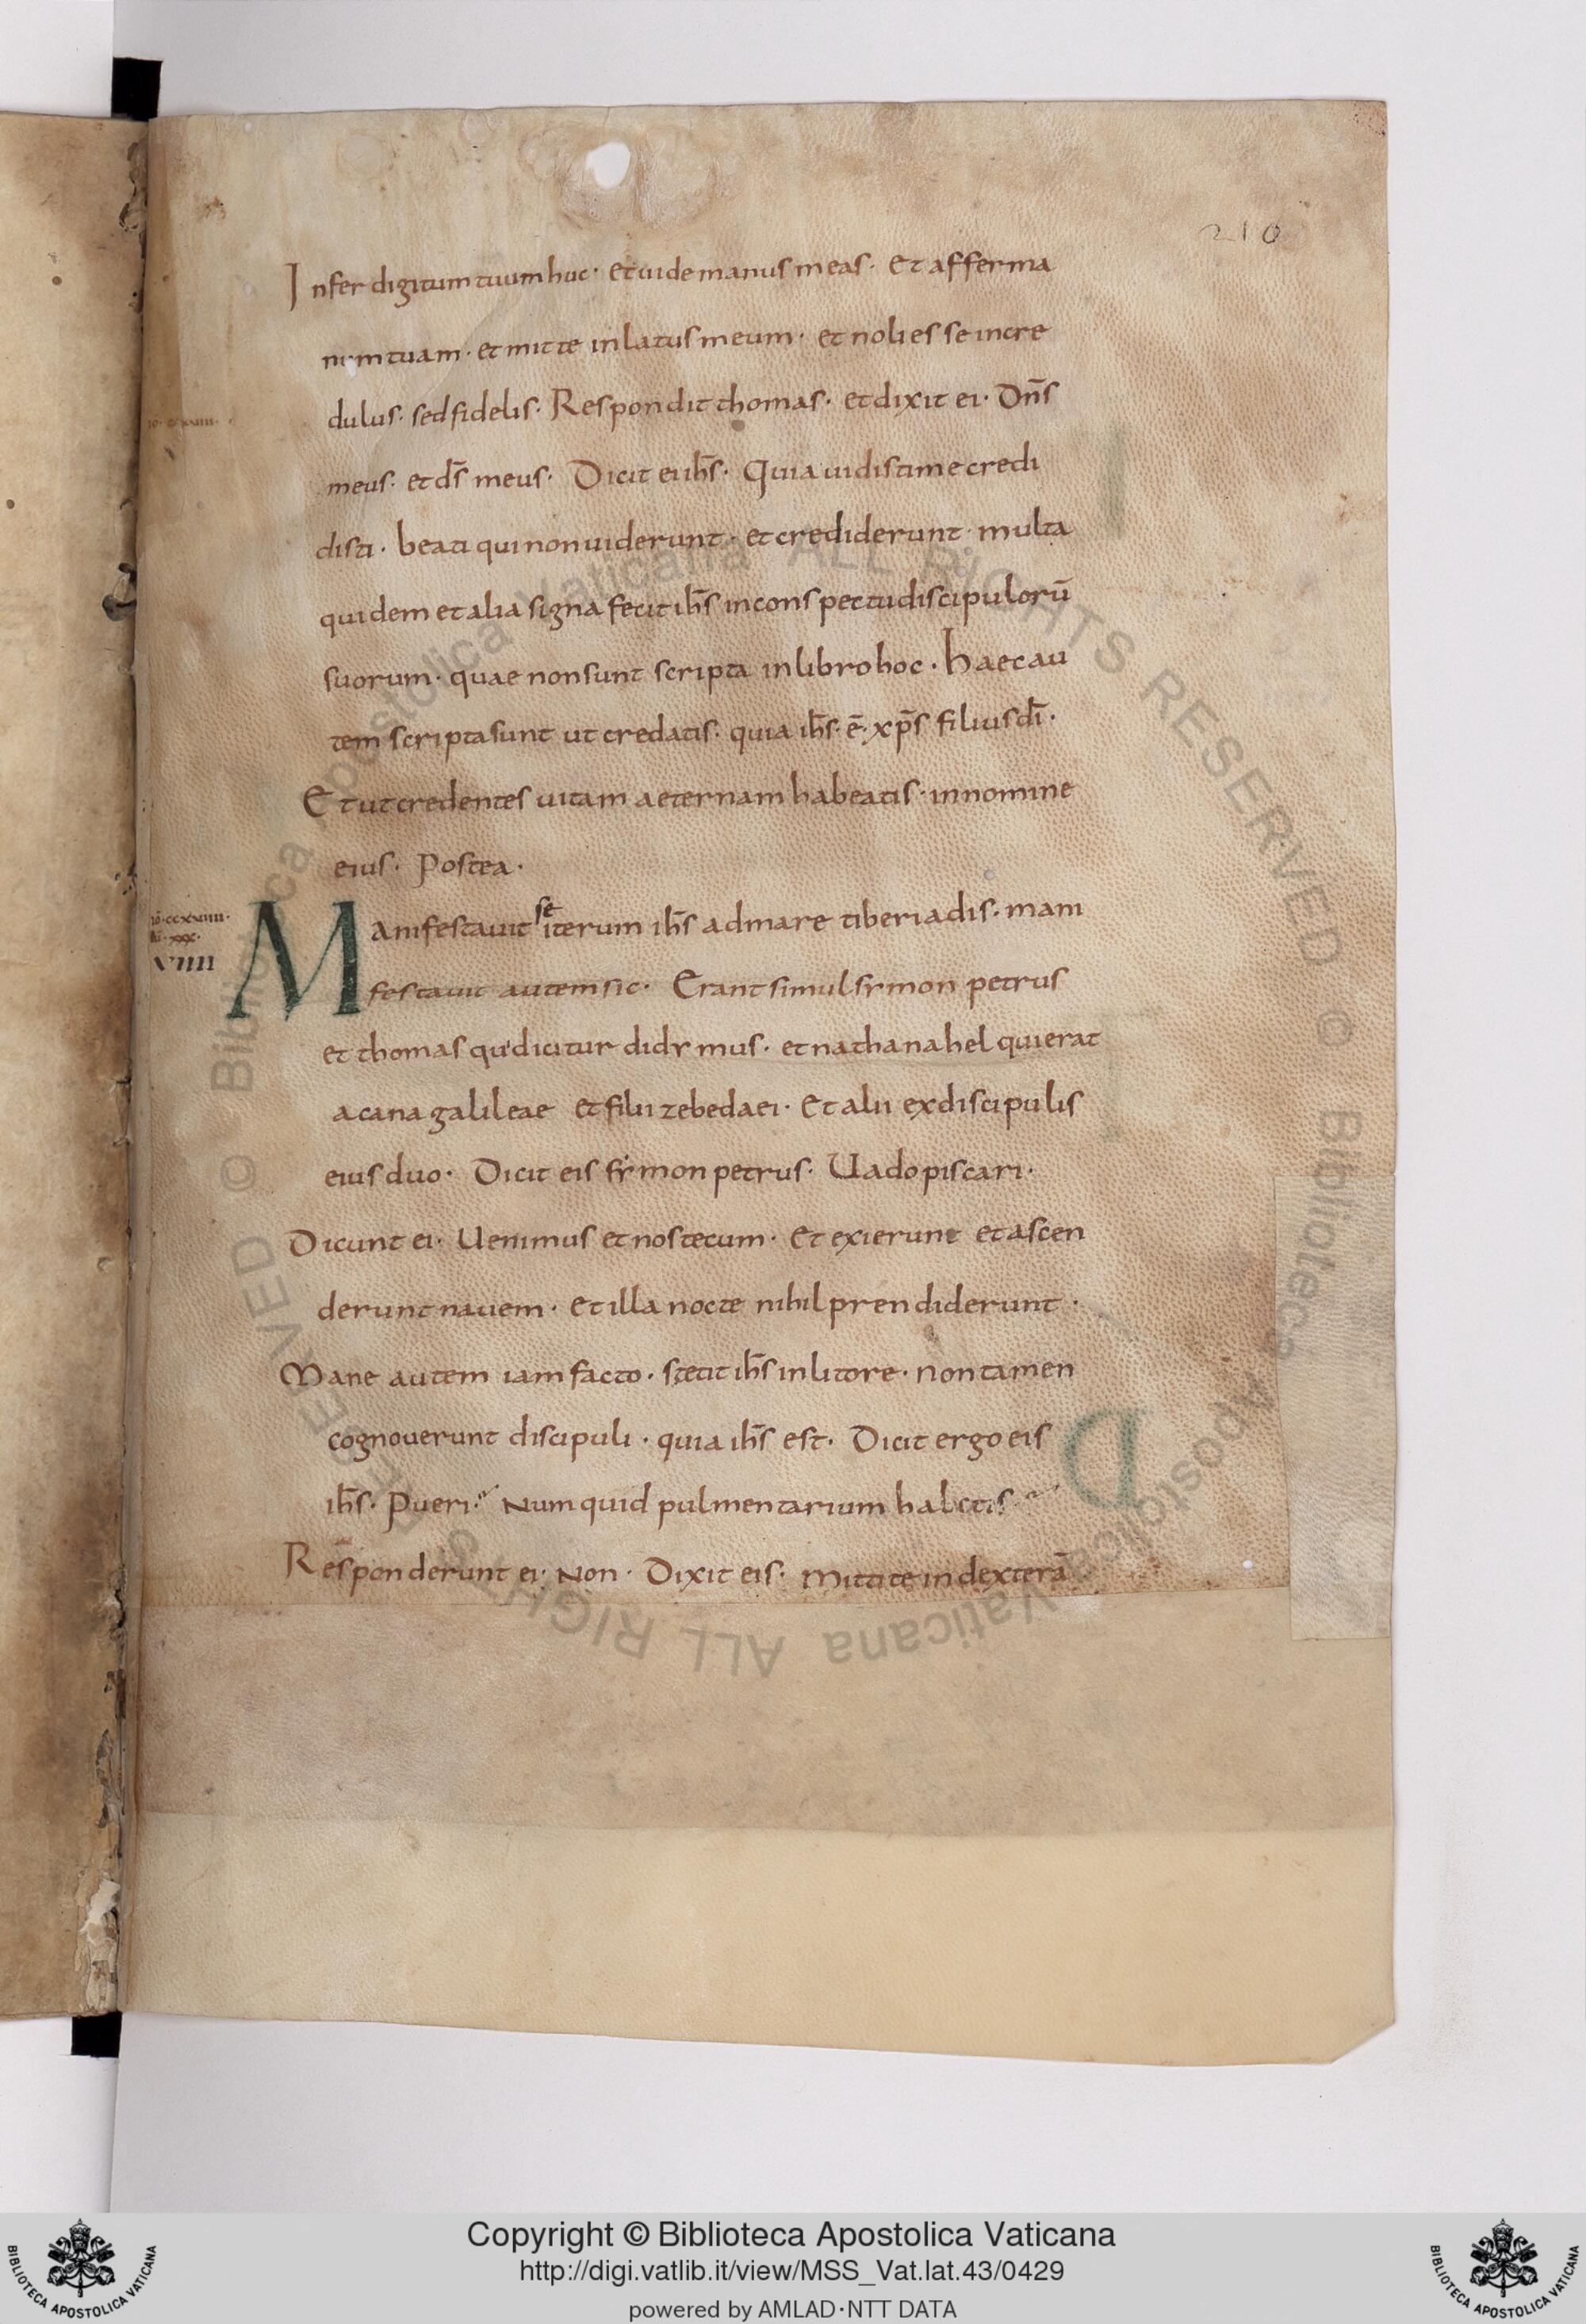 210
Infer digitum tuum huc· et uide manus meas· et affer ma
num tuam· et mitte in latus meum· et noli esse incre
dulus· sed fidelis· Respondit thomas· et dixit ei· Dn̄s
meus· et ds̄ meus· Dicit ei ih̄s· Quia uidisti me credi
disti· beati qui non uiderunt· et crediderunt· multa
quidem et alia signa fecit ih̄s in conspectu discipulorū
suorum· quae non sunt scripta in libro hoc· haec au
tem scripta sunt ut credatis· quia ih̄s· ē· xp̄s filius dī·
Et ut credentes uitam aeternam habeatis· in nomine
eius· Postea·
iō·ccxviiii·
VIIII
Manifestauit se iterum ih̄s ad mare tiberiadis· mani
festauit autem sic· Erant simul symon petrus
et thomas qui dicitur didymus· et nathanahel qui erat
a cana galileae et filii zebedaei· Et alii ex discipulis
eius duo· Dicit eis symon petrus· Uado piscari·
Dicunt ei· Uenimus et nos tecum· Et exierunt et ascen
derunt nauem· et illa nocte nihil prendiderunt·
Mane autem iam facto· stetit ih̄s in litore· non tamen
cognouerunt discipuli· quia ih̄s est· Dicit ergo eis
ih̄s· Pueri· Numquid pulmentarium habetis
Responderunt ei· Non· Dixit eis· mittite in dexterā
© Biblioteca Apostolica Vaticana ALL RIGHTS RESERVED © Biblioteca Apostolica Vaticana ALL RIGHTS RESERVED
Copyright © Biblioteca Apostolica Vaticana
http://digi.vatlib.it/view/MSS_Vat.lat.43/0429
powered by AMLAD·NTT DATA
BIBLIOTECA APOSTOLICA VATICANA
BIBLIOTECA APOSTOLICA VATICANA